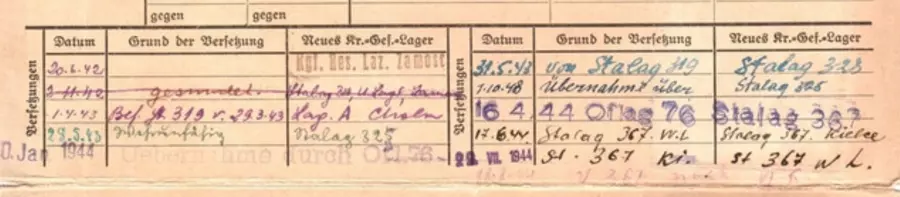 gegen gegen
Versetzungen
Datum Grund der Versetzung Neues Kr.-Gef.-Lager
20.6.42 Kgf. Res. Laz. Zamosc
2.11.42 gesundet. Stalag
1.4.43 Bef. St. 319 v. 29.3.43 Lap. A Cholm
29.5.43 Stalag 325
0. Jan. 1944 Uebernahme durch Ofl. 76
Versetzungen
Datum Grund der Versetzung Neues Kr.-Gef.-Lager
31.5.43 von Stalag 319 Stalag 328
1.10.43 Übernahme über Stalag 325
16 4 44 Oflag 76 Stalag 367
17.6.44 Stalag 367. W.L Stalag 367. Kielce
29. VII. 1944 St. 367 Ki. St 367 W L.